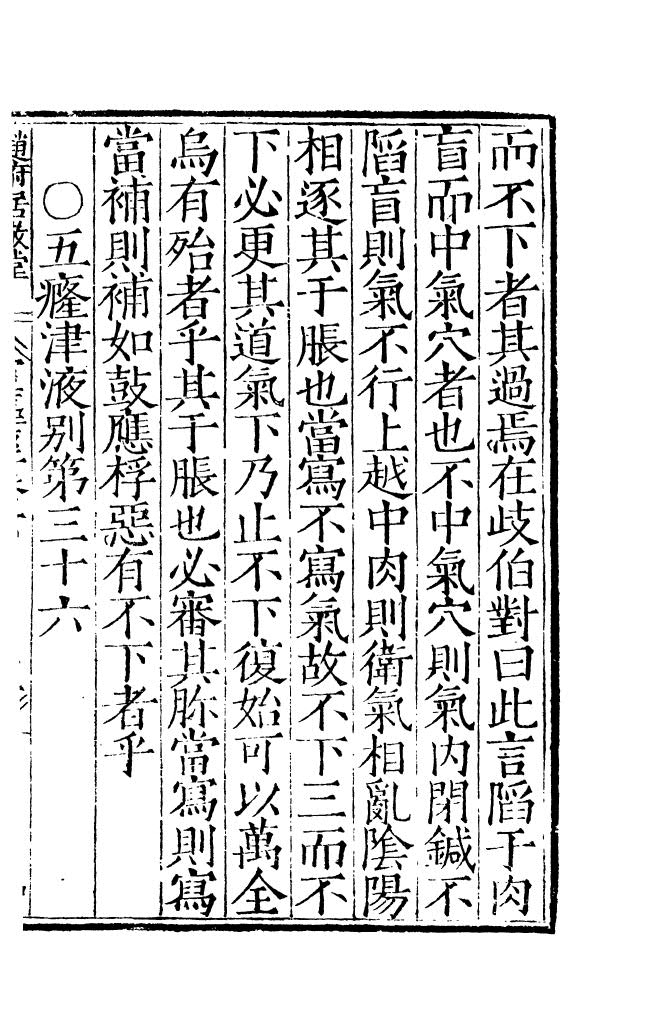 而不下者其過焉在歧伯對曰此言陷于肉
肓而中氣穴者也不中氣穴則氣内閉鍼不
陷肓則氣不行上越中肉則衛氣相亂陰陽
相逐其于脹也當寫不寫氣故不下三而不
下必更其道氣下乃止不下復始可以萬全
烏有殆者乎其于脹也必審其胗當寫則寫
當補則補如鼓應桴惡有不下者乎
○五癃津液别第三十六
趙府居敬堂